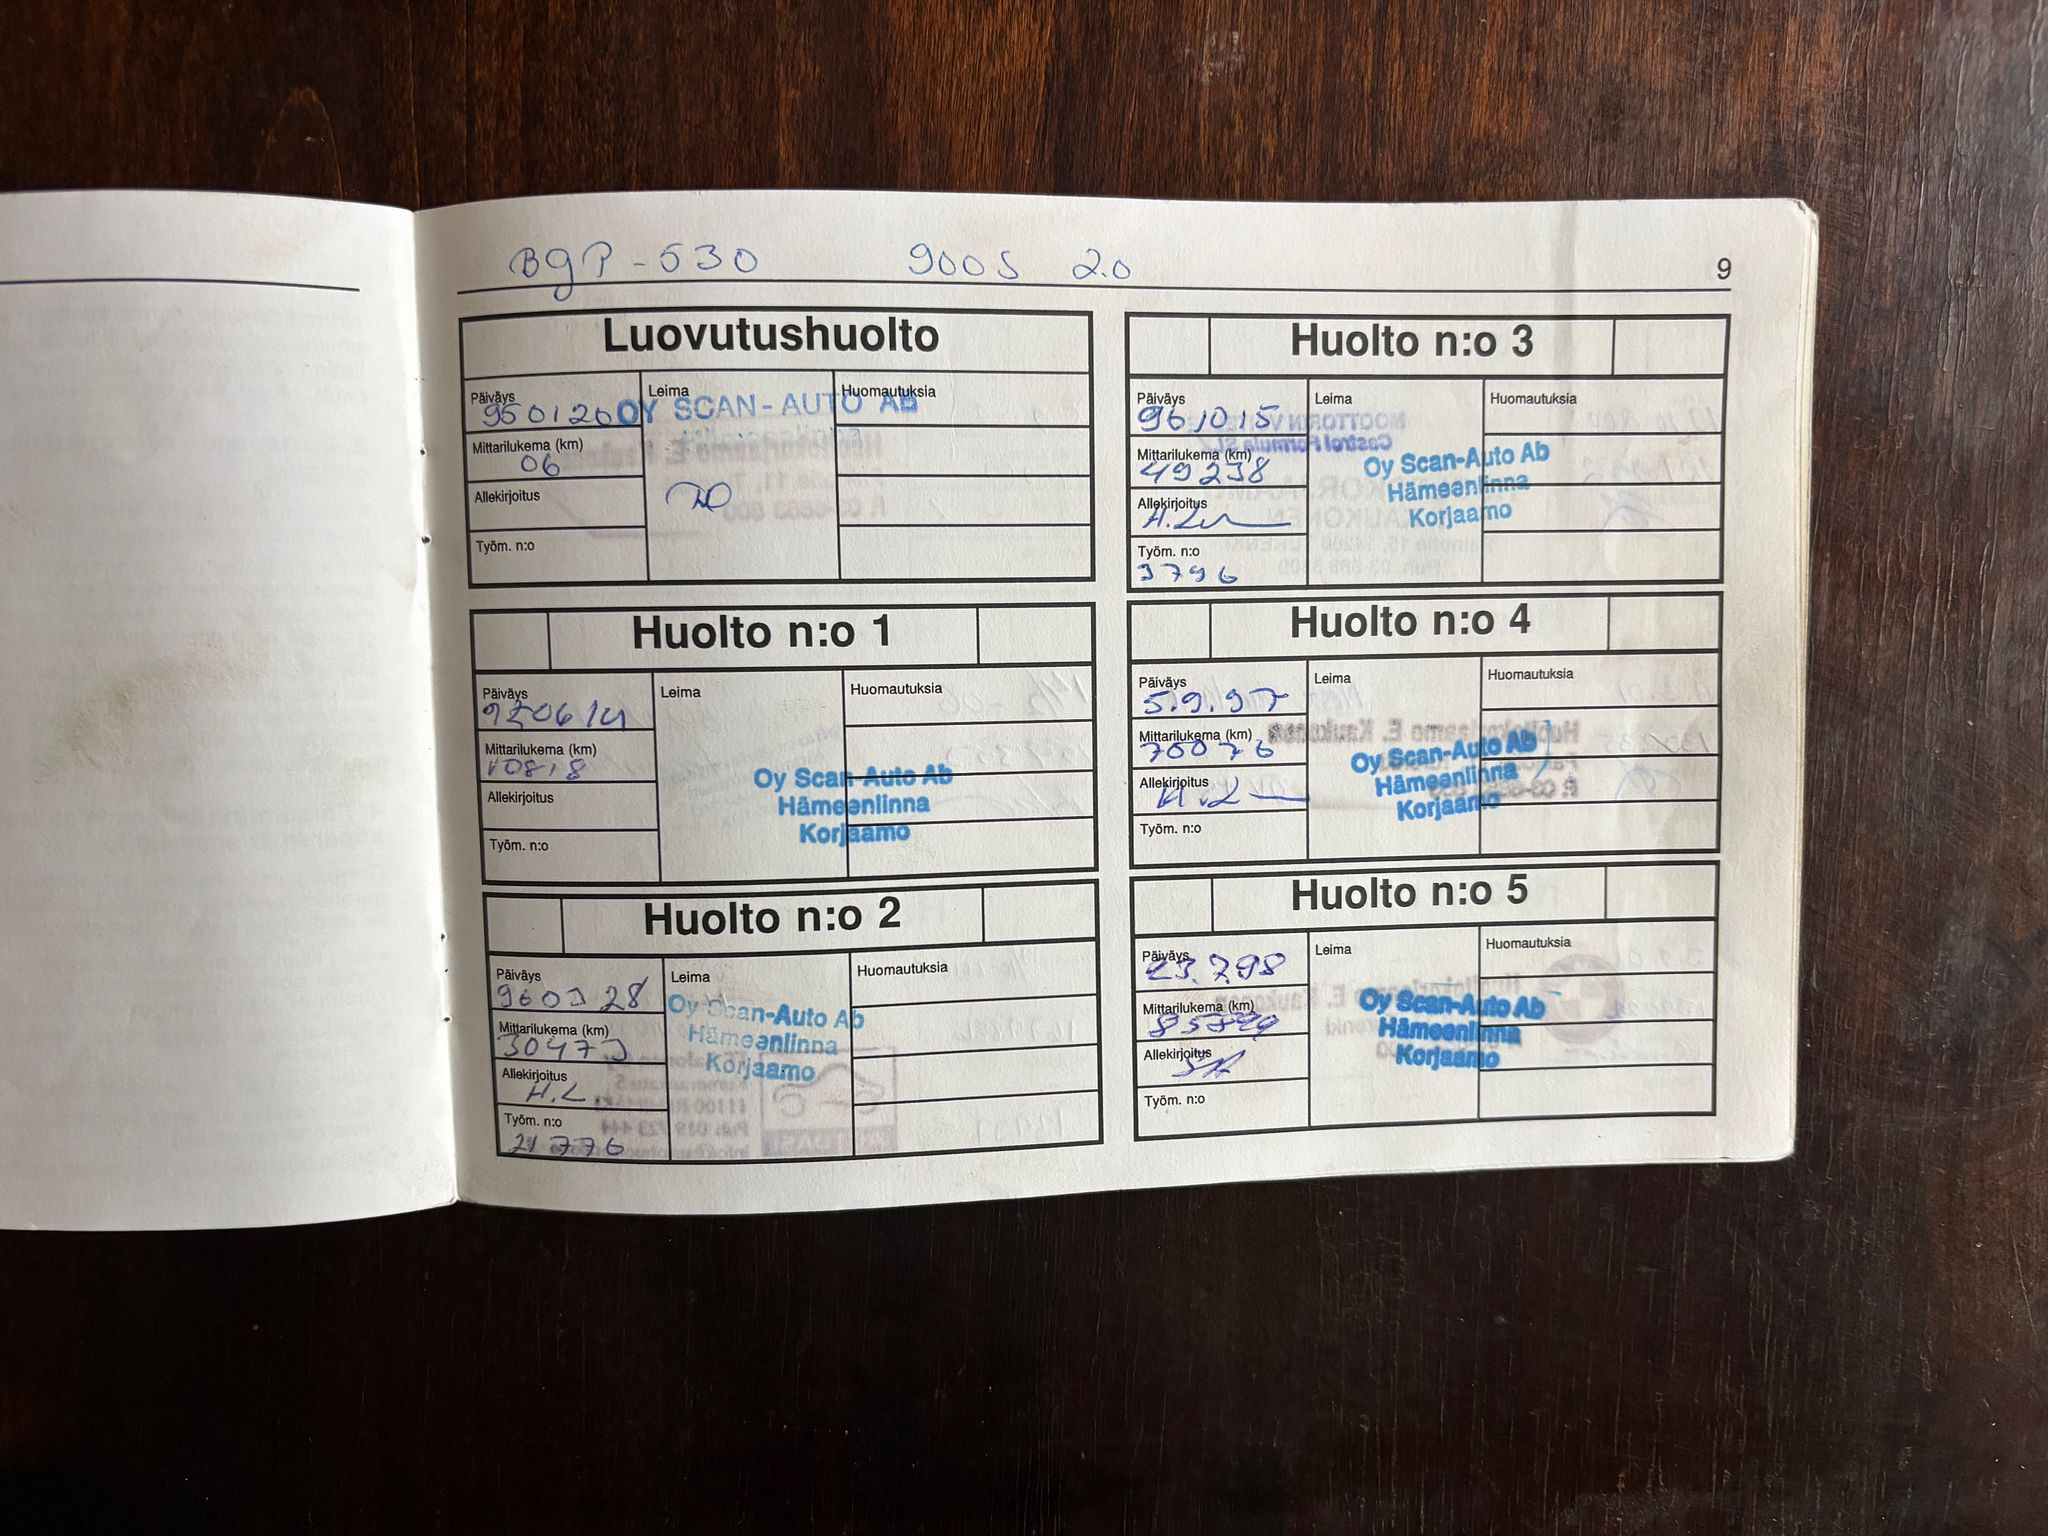 BGP-530 900S 2.0
9
Luovutushuolto
Päiväys
950120
Leima
OY SCAN-AUTO AB
Huomautuksia
Mittarilukema (km)
06
Allekirjoitus
Työm. n:o
Huolto n:o 1
Päiväys
950614
Leima
Oy Scan-Auto Ab
Hämeenlinna
Korjaamo
Huomautuksia
Mittarilukema (km)
10818
Allekirjoitus
Työm. n:o
Huolto n:o 2
Päiväys
960328
Leima
Oy Scan-Auto Ab
Hämeenlinna
Korjaamo
Huomautuksia
Mittarilukema (km)
30473
Allekirjoitus
H.L
Työm. n:o
21776
Huolto n:o 3
Päiväys
961015
Leima
Oy Scan-Auto Ab
Hämeenlinna
Korjaamo
Huomautuksia
Mittarilukema (km)
49238
Allekirjoitus
Työm. n:o
3796
Huolto n:o 4
Päiväys
5.9.97
Leima
Oy Scan-Auto Ab
Hämeenlinna
Korjaamo
Huomautuksia
Mittarilukema (km)
70076
Allekirjoitus
Työm. n:o
Huolto n:o 5
Päiväys
23.7.98
Leima
Oy Scan-Auto Ab
Hämeenlinna
Korjaamo
Huomautuksia
Mittarilukema (km)
Allekirjoitus
Työm. n:o